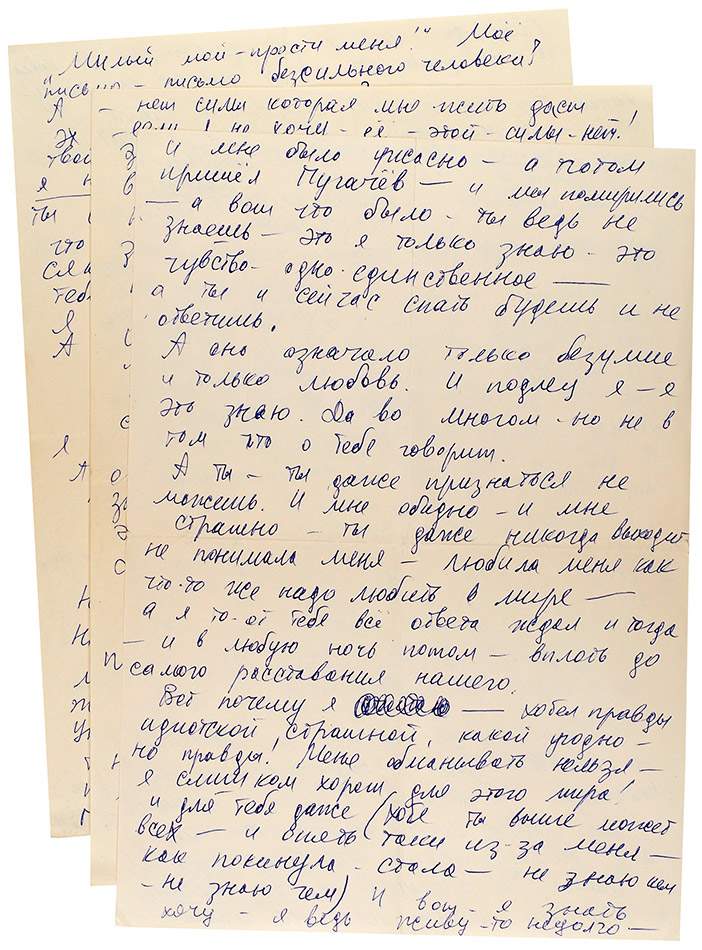 "Милый мой - прости меня!" Моё
письмо - письмо безсильного человека!
А - нет силы которая мне жить даст!
- если я не хочу - её - этой - силы - нет!
твой
я н
ты
что
тебе
Я
А
я
И мне было ужасно - а потом
пришёл Пугачёв — и мы помирились
- а вот что было - ты ведь не
знаешь - это я только знаю - это
чувство - одно-единственное —
а ты и сейчас спать будешь и не
ответишь.
А оно означало только безумие
и только любовь. И подлец я - я
это знаю. Да во многом - но не в
том что о тебе говорит.
А ты - ты даже признаться не
можешь. И мне обидно - и мне
страшно - ты даже никогда выходит
не понимала меня - любила меня как
что-то же надо любить в мире —
а я то - от тебя всё ответа ждал и тогда
- и в любую ночь потом - вплоть до
самого расставания нашего.
Вот почему я — хотел правды
идиотской, страшной, какой угодно -
но правды! Меня обманывать нельзя -
я слишком хорош для этого мира!
и для тебя даже (хотя ты выше может
всех - и опять таки из-за меня -
как покинула - стала - не знаю кем
- не знаю чем) И вот - я знать
хочу - я ведь живу-то недолго -